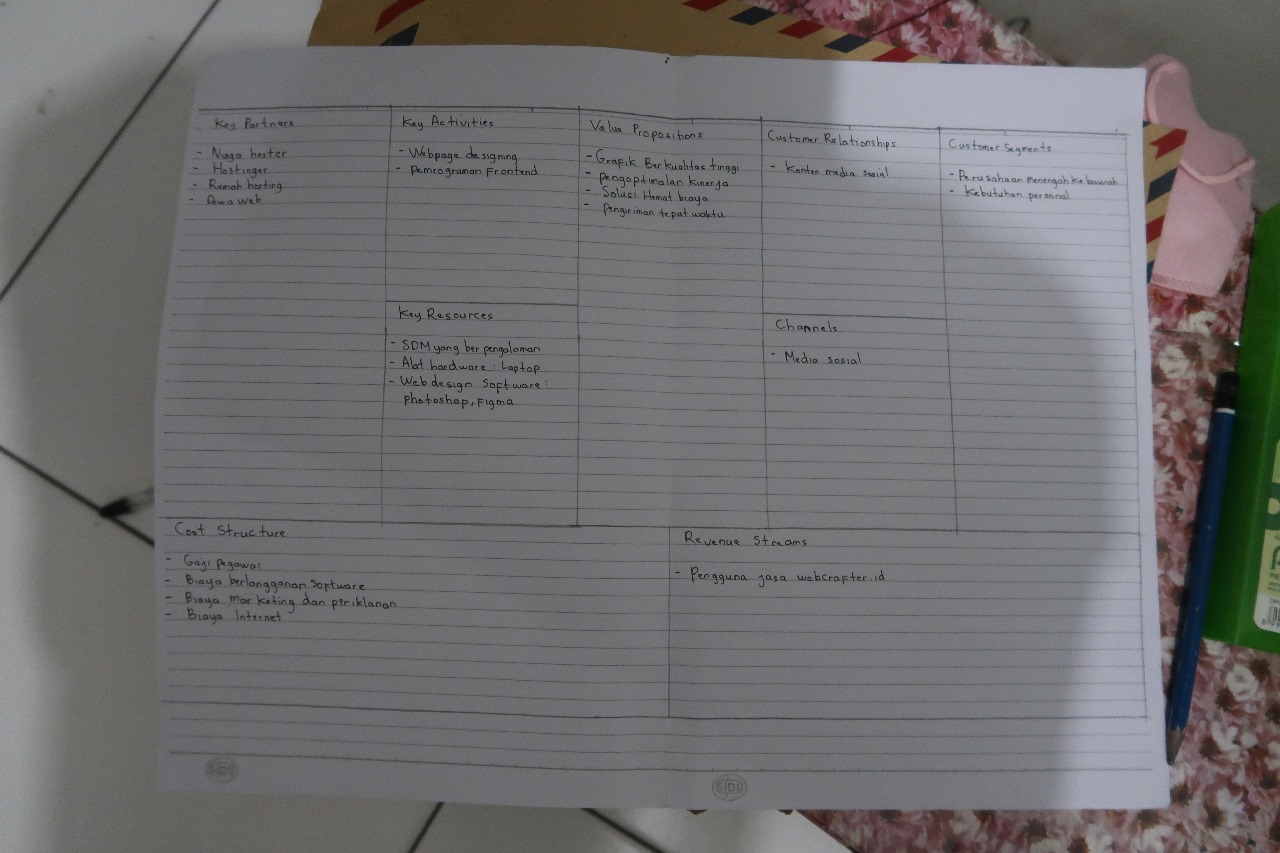 Key Partners
- Niaga hoster
- Hostinger
- Rumah hosting
- Dewa Web
Key Activities
- Webpage designing
- Pemrograman Frontend
Key Resources
- SDM yang berpengalaman
- Alat hardware : Laptop
- Web design Software :
Photoshop, Figma
Value Propositions
- Grafik Berkualitas tinggi
- Pengoptimalan Kinerja
- Solusi Hemat biaya
- Pengiriman tepat waktu
Customer Relationships
- Konten media sosial
Channels
- Media sosial
Customer Segments
- Perusahaan menengah ke bawah
- Kebutuhan personal
Cost Structure
- Gaji Pegawai
- Biaya berlangganan Software
- Biaya Marketing dan periklanan
- Biaya Internet
Revenue Streams
- Pengguna jasa webcrafter.id
SIDU
SIDU